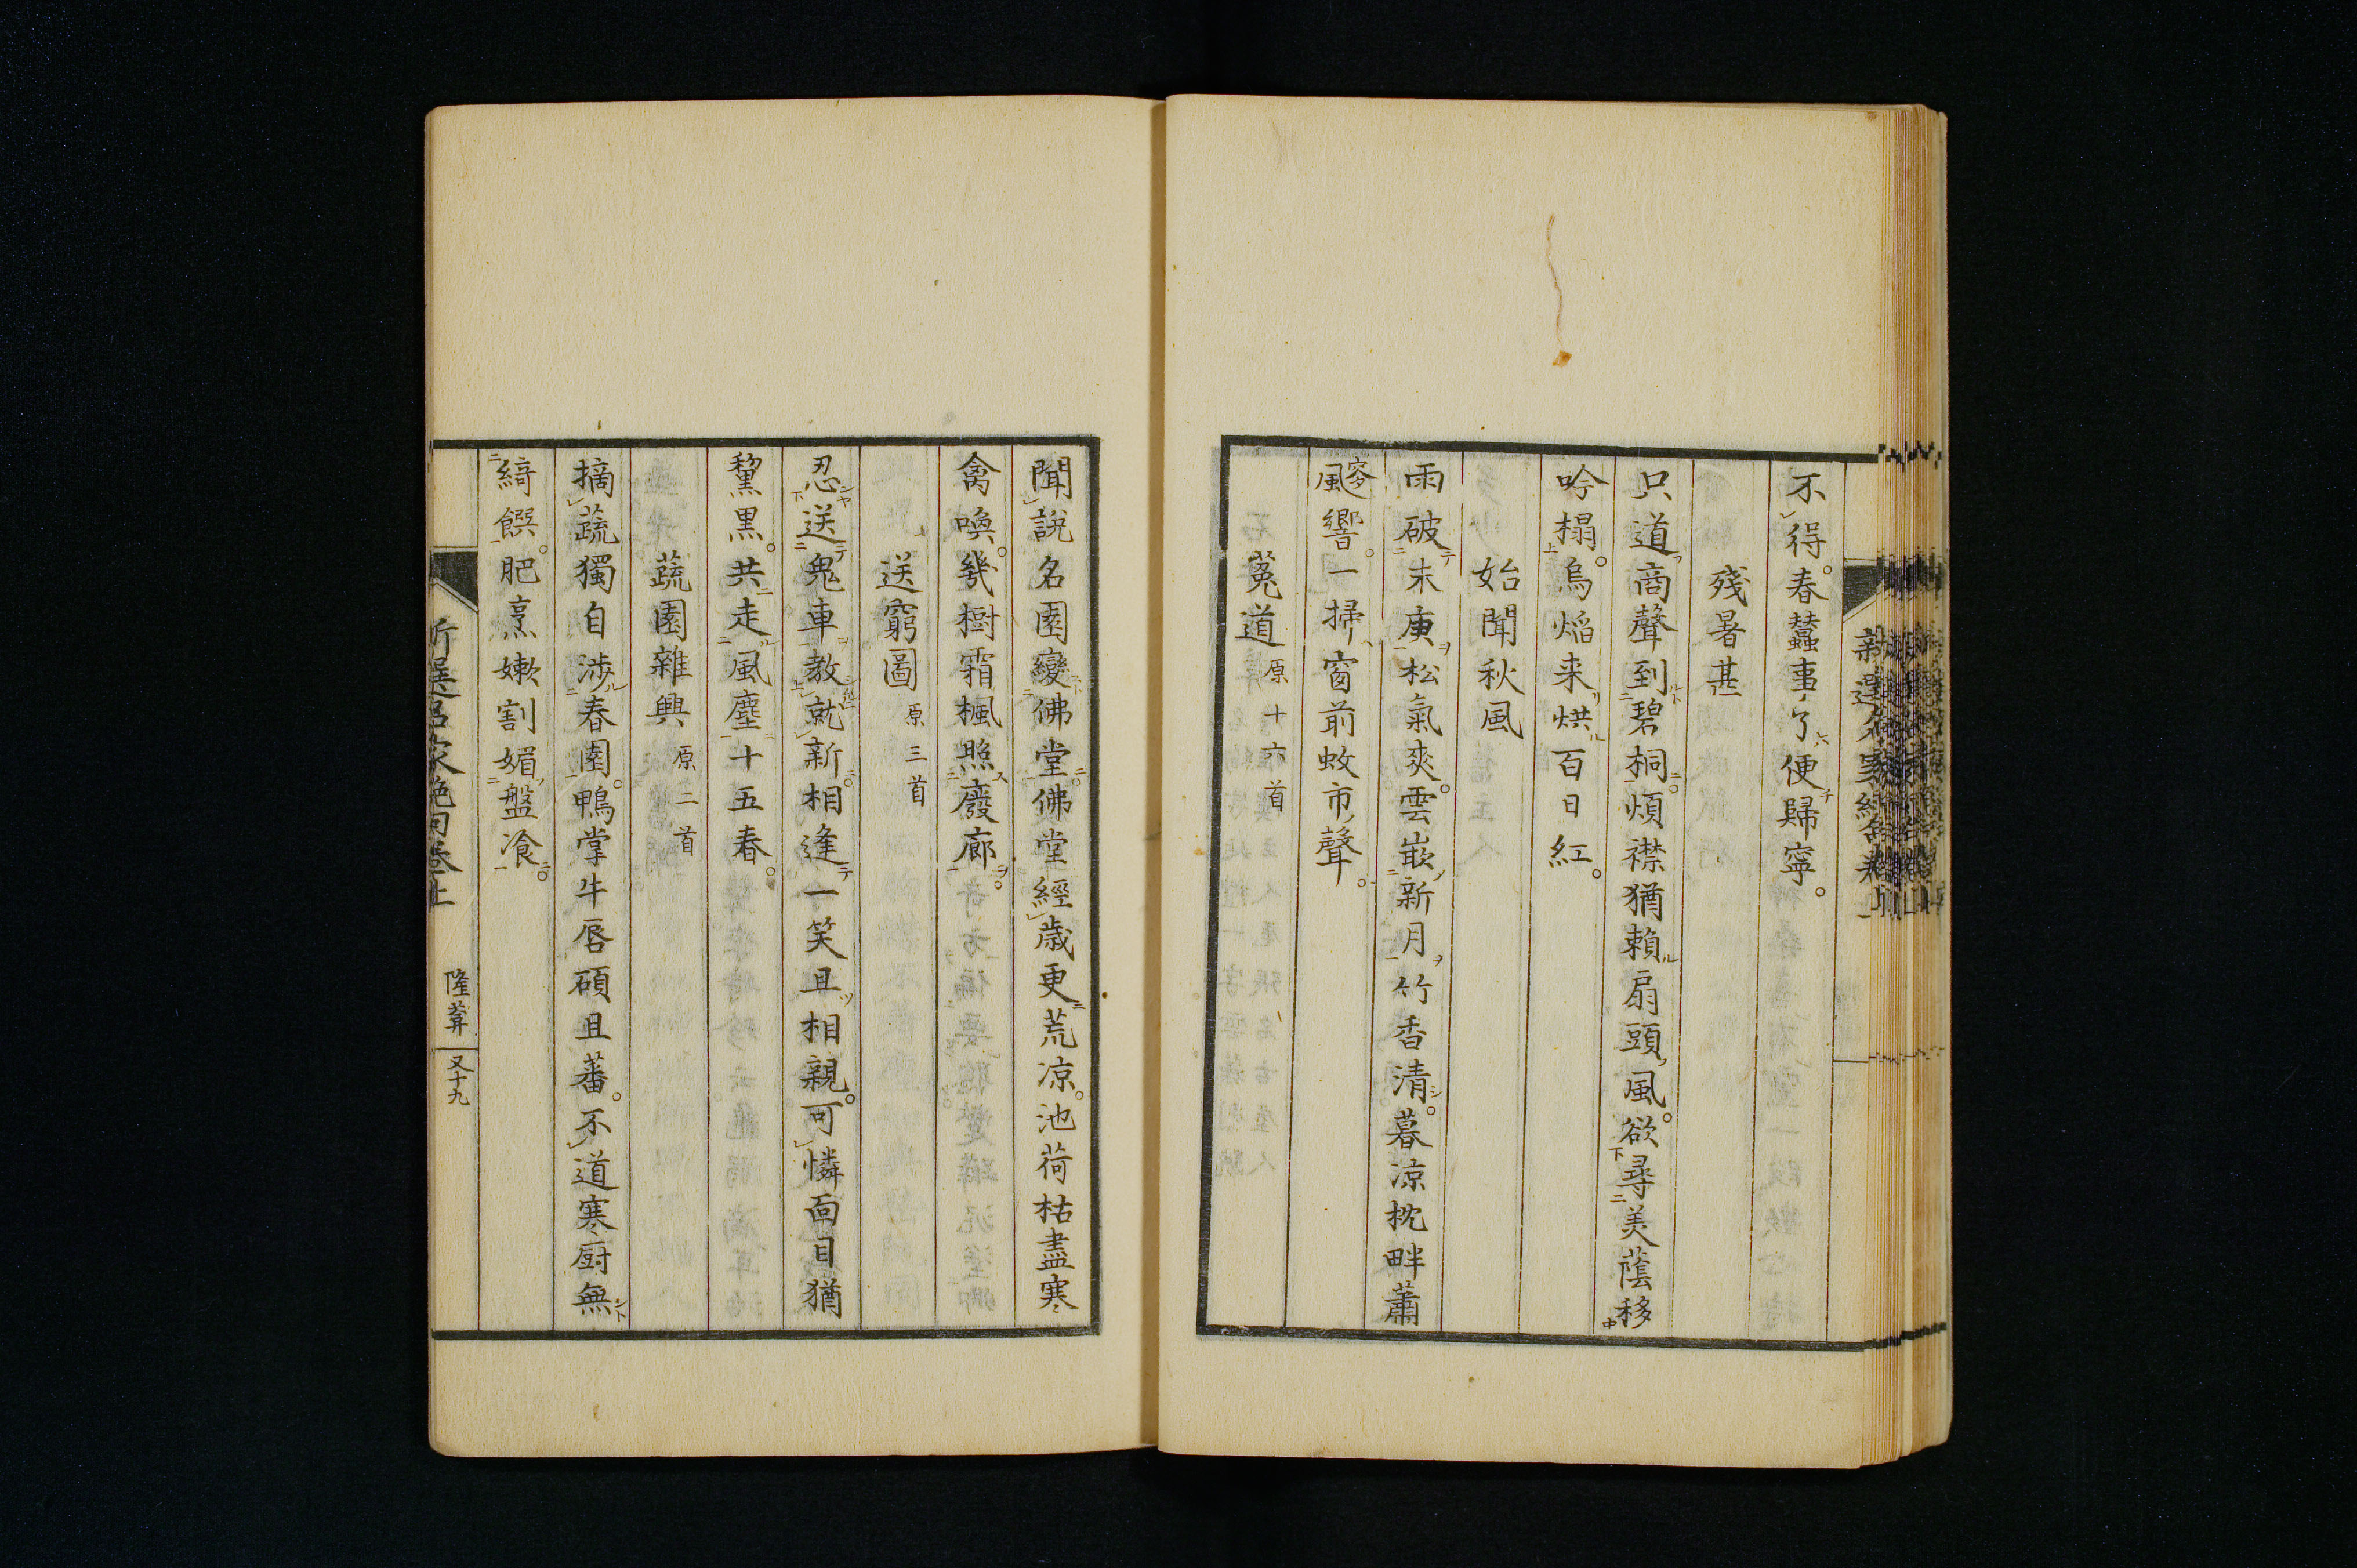 不得。春蠶事了便歸寧。
殘暑甚
只道商聲到碧桐。煩襟猶賴扇頭風。欲尋美蔭移
吟榻。烏焰来烘百日紅。
始聞秋風
雨破末庚松氣爽。雲嵌新月竹香清。暮凉枕畔蕭
飉響。一掃窗前蚊市聲。
菟道 原十六首
聞說名園變佛堂。佛堂經歳更荒凉。池荷枯盡寒
禽喚。幾樹霜楓照廢廊。
送窮圖 原三首
忍送鬼車教就新。相逢一笑且相親。可憐面目猶
黧黒。共走風塵十五春。
蔬園雜興 原二首
摘蔬獨自渉春園。鴨掌牛唇碩且蕃。不道寒厨無
綺饌。肥烹嫩割媚盤飡。
新選名家絶句卷上
隆葊
又十九